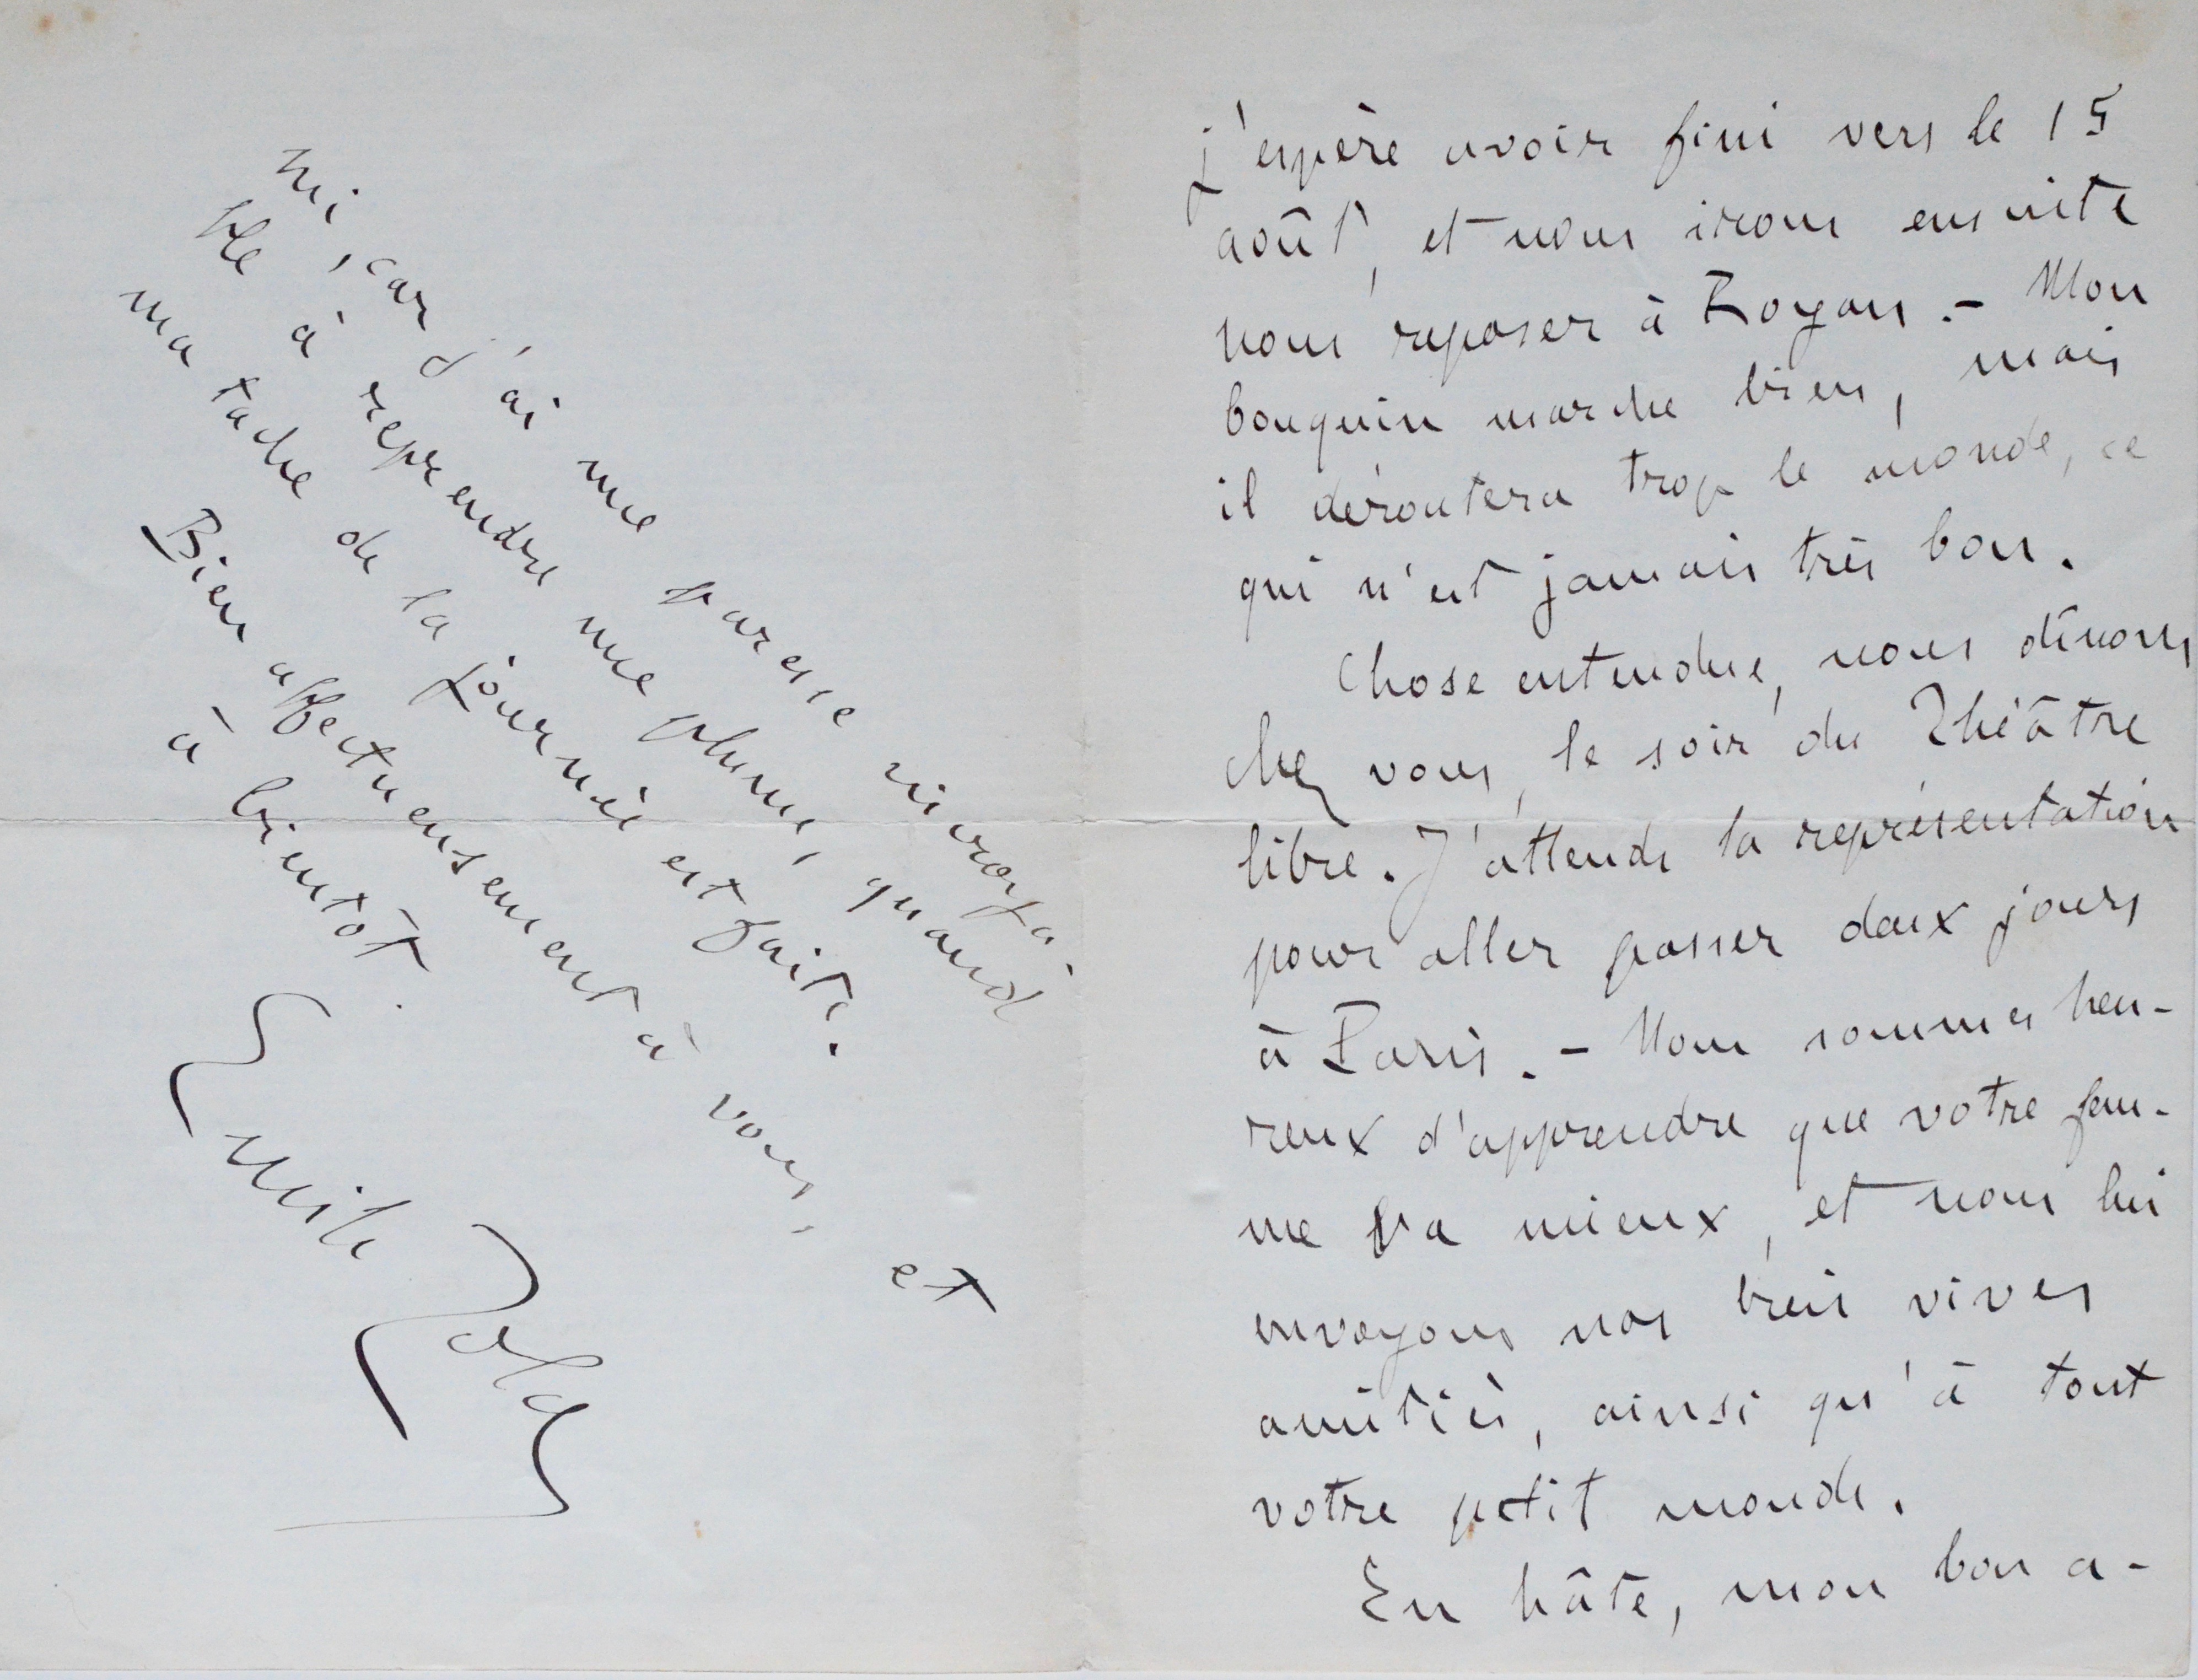 j'espère avoir fini vers le 15
août, et nous irons ensuite
nous reposer à Royan. – Mon
bouquin marche bien, mais
il déroutera trop le monde, ce
qui n'est jamais très bon.
Chose entendue, nous dînons
chez vous, le soir du Théâtre
libre. J'attends la représentation
pour aller passer deux jours
à Paris. – Nous sommes heu-
reux d'apprendre que votre fem-
me va mieux, et nous lui
envoyons nos bien vives
amitiés, ainsi qu'à tout
votre petit monde.
En hâte, mon bon a-
mi, car j'ai une paresse incroya-
ble à reprendre une plume, quand
ma tache de la journée est faite.
Bien affectueusement à vous, et
à bientôt.
Emile Zola